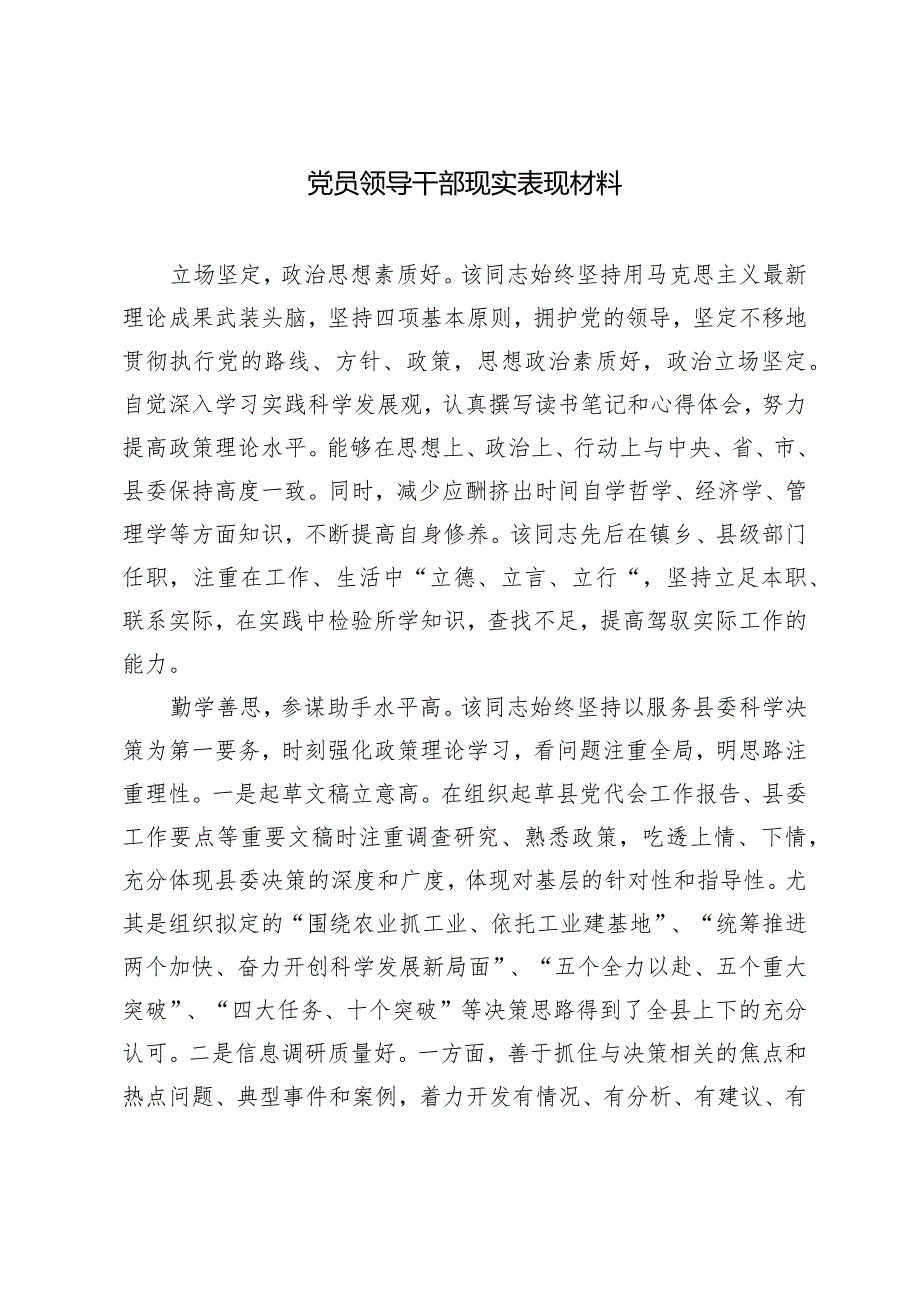 党员领导干部现实表现材料
立场坚定，政治思想素质好。该同志始终坚持用马克思主义最新
理论成果武装头脑，坚持四项基本原则，拥护党的领导，坚定不移地
贯彻执行党的路线、方针、政策，思想政治素质好，政治立场坚定。
自觉深入学习实践科学发展观，认真撰写读书笔记和心得体会，努力
提高政策理论水平。能够在思想上、政治上、行动上与中央、省、市、
县委保持高度一致。同时，减少应酬挤出时间自学哲学、经济学、管
理学等方面知识，不断提高自身修养。该同志先后在镇乡、县级部门
任职，注重在工作、生活中“立德、立言、立行“，坚持立足本职、
联系实际，在实践中检验所学知识，查找不足，提高驾驭实际工作的
能力。
勤学善思，参谋助手水平高。该同志始终坚持以服务县委科学决
策为第一要务，时刻强化政策理论学习，看问题注重全局，明思路注
重理性。一是起草文稿立意高。在组织起草县党代会工作报告、县委
工作要点等重要文稿时注重调查研究、熟悉政策，吃透上情、下情，
充分体现县委决策的深度和广度，体现对基层的针对性和指导性。尤
其是组织拟定的“围绕农业抓工业、依托工业建基地”、“统筹推进
两个加快、奋力开创科学发展新局面”、“五个全力以赴、五个重大
突破”、“四大任务、十个突破”等决策思路得到了全县上下的充分
认可。二是信息调研质量好。一方面，善于抓住与决策相关的焦点和
热点问题、典型事件和案例，着力开发有情况、有分析、有建议、有